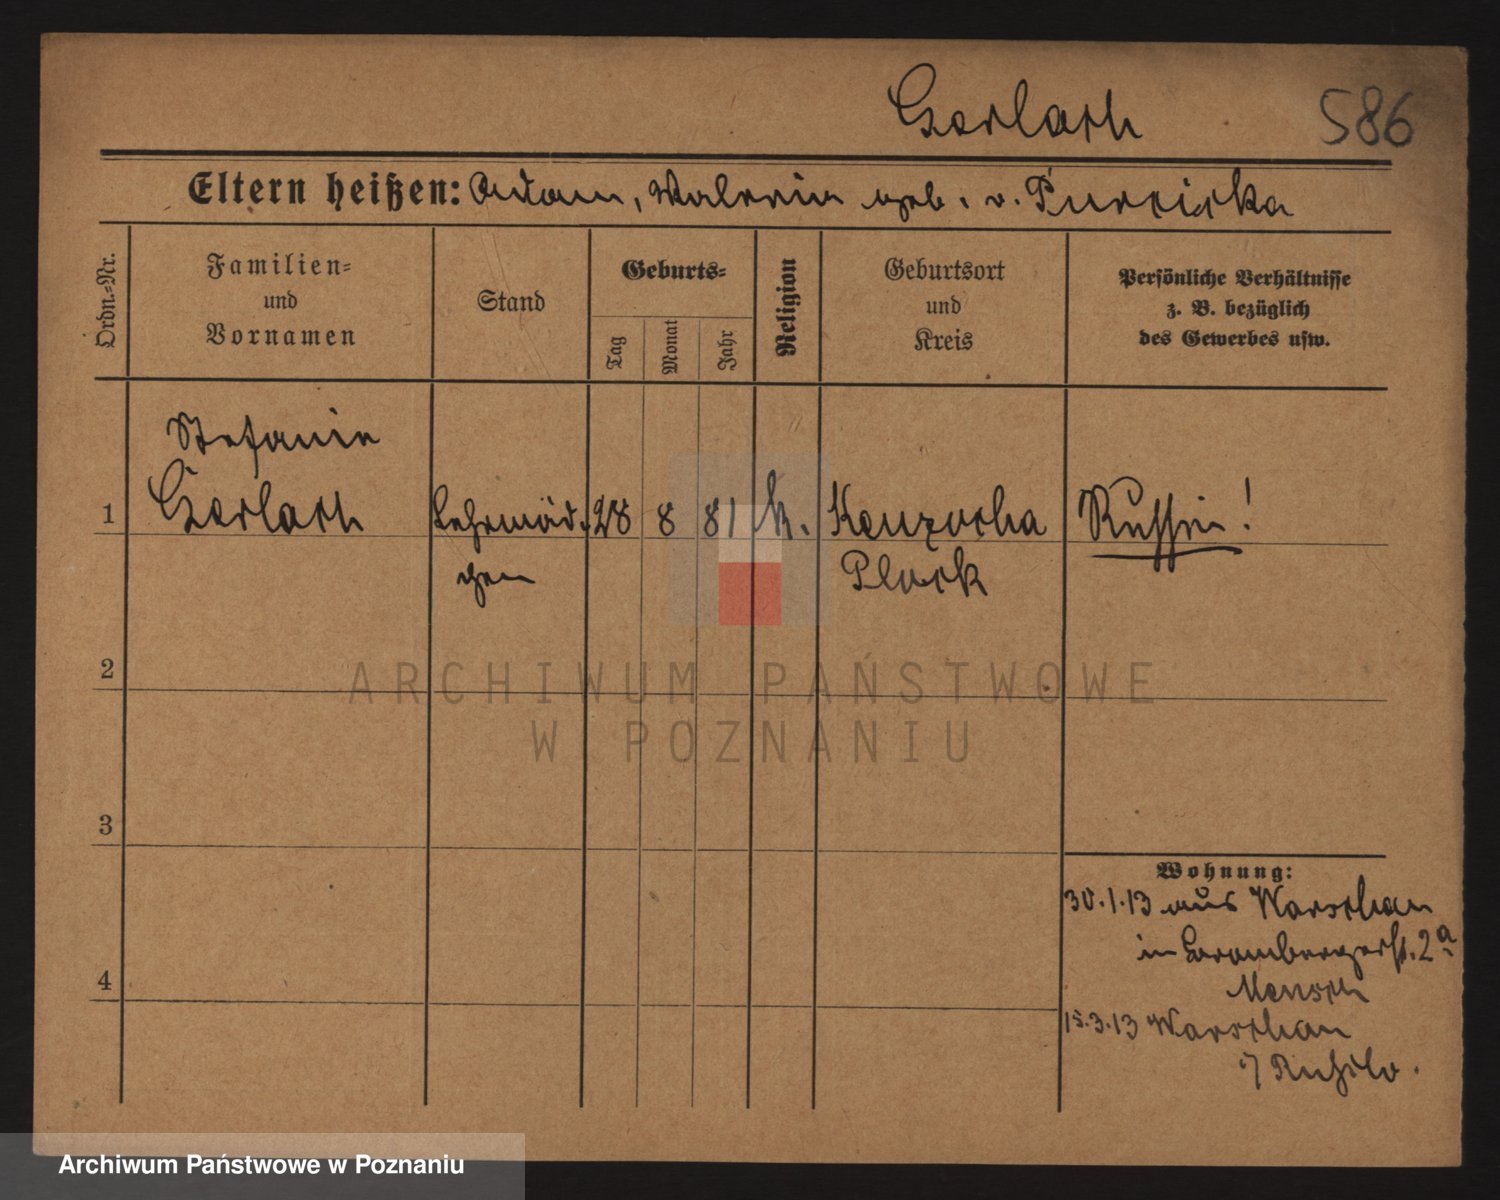 Gerlach 586
Eltern heißen: Adam, Valerie geb. v.
Ordn.=Nr.
Familien=
und
Vornamen
Stand
Geburts=
Tag
Monat
Jahr
Religion
Geburtsort
und
Kreis
Persönliche Verhältnisse
z. B. bezüglich
des Gewerbes usw.
Stefanie
1 Gerlach Lehrmäd- 28 8 81 k. Russin!
chen Plock
2
ARCHIWUM PAŃSTWOWE
W POZNANIU
3
Wohnung:
30.1.13 aus Warschau
in Brombergerst. 2a
Mensch
4
15.3.13 Warschau
Archiwum Państwowe w Poznaniu